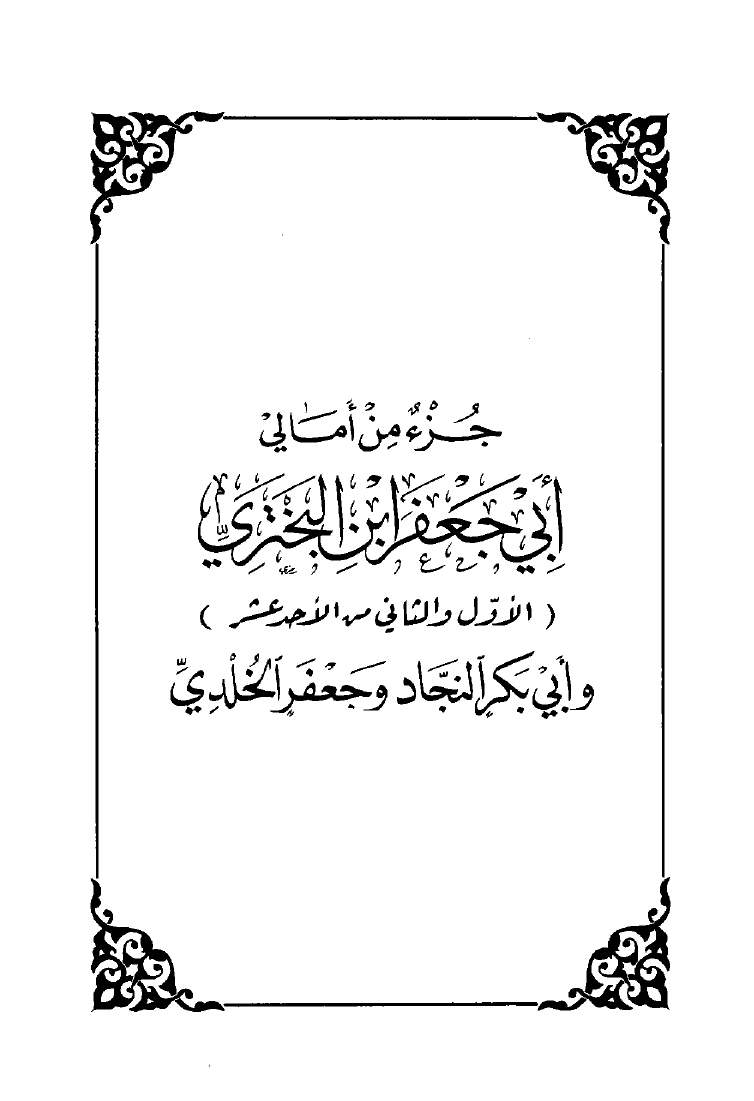 جُزْءٌ مِنْ أَمَالِيْ
أَبِيْ جَعْفَرَ ابْنِ البَخْتَرِيِّ
( الأوّل والثاني من الأحد عشر )
وأَبِيْ بَكْرٍ ٱلنَّجَّاد وَجَعْفَرٍ ٱلخُلْدِيِّ